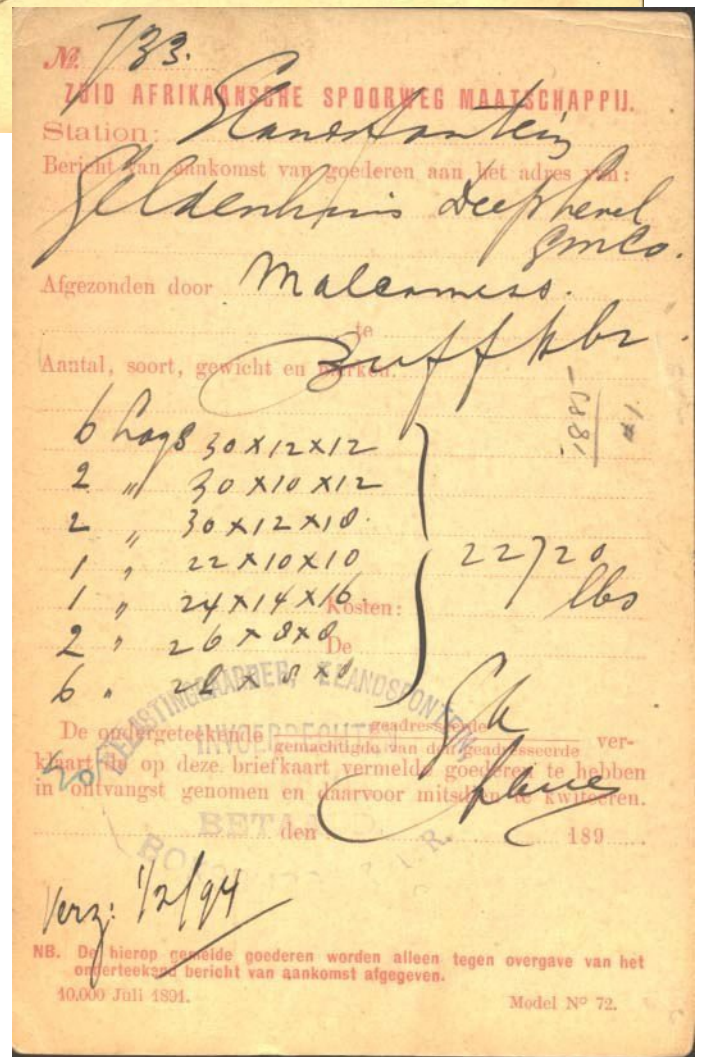 No. 733.
ZUID AFRIKAANSCHE SPOORWEG MAATSCHAPPIJ.
Station: Elandsfontein
Bericht van aankomst van goederen aan het adres van:
Geldenhuis Deep Level
GMCo.
Afgezonden door Malcomess.
te
Aantal, soort, gewicht en merken.
6 30 x 12 x 12
2 " 30 x 10 x 12
2 " 30 x 12 x 18.
1 " 22 x 10 x 10
1 " 24 x 14 x 16. Kosten:
2 " 26 x 8 x 8 De
6 " x 8 x 8
22720
lbs
De ondergeteekende geadresseerde
gemachtigde van den geadresseerde ver-
klaart de op deze briefkaart vermelde goederen te hebben
in ontvangst genomen en daarvoor mitsdien te kwiteeren.
den 189
ELANDSFONTEIN
INVOERRECHTEN
BETAALD
Z.A.R.
Verz: 1/2/94
NB. De hierop gemelde goederen worden alleen tegen overgave van het
onderteekend bericht van aankomst afgegeven.
10.000 Juli 1891. Model No 72.